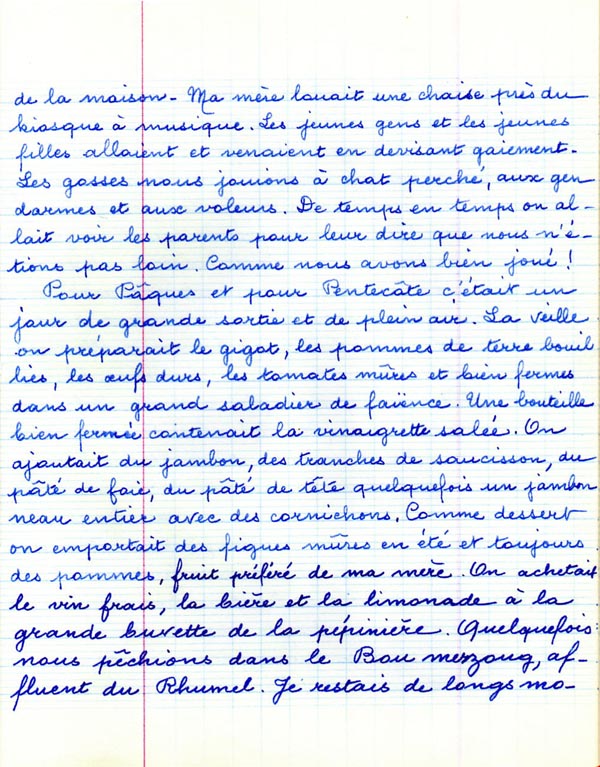 de la maison - Ma mère louait une chaise près du
kiosque à musique. Les jeunes gens et les jeunes
filles allaient et venaient en devisant gaiement.
Les gosses nous jouions à chat perché, aux gen
darmes et aux voleurs. De temps en temps on al-
lait voir les parents pour leur dire que nous n'é-
tions pas loin. Comme nous avons bien joué !
Pour Pâques et pour Pentecôte c'était un
jour de grande sortie et de plein air. La veille
on préparait le gigot, les pommes de terre bouil
lies, les œufs durs, les tomates mûres et bien fermes
dans un grand saladier de faïence. Une bouteille
bien fermée contenait la vinaigrette salée. On
ajoutait du jambon, des tranches de saucisson, du
pâté de foie, du pâté de tête quelquefois un jambon
neau entier avec des cornichons. Comme dessert
on emportait des figues mûres en été et toujours
des pommes, fruit préféré de ma mère. On achetait
le vin frais, la bière et la limonade à la
grande buvette de la pépinière. Quelquefois
nous pêchions dans le Bou merzoug, af-
fluent du Rhumel. Je restais de longs mo-